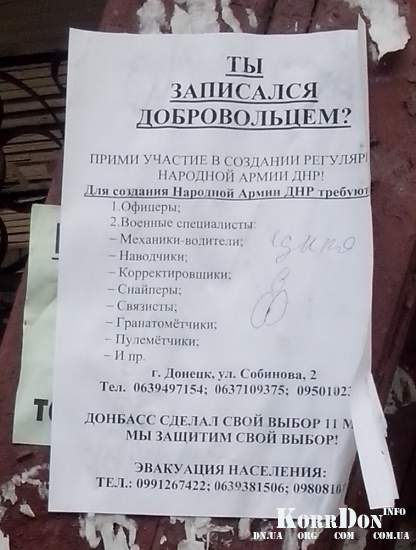 ТЫ
ЗАПИСАЛСЯ
ДОБРОВОЛЬЦЕМ?
ПРИМИ УЧАСТИЕ В СОЗДАНИИ РЕГУЛЯР
НАРОДНОЙ АРМИИ ДНР!
Для создания Народной Армии ДНР требуют
1.Офицеры;
2.Военные специалисты:
– Механики-водители;
– Наводчики;
– Корректировщики;
– Снайперы;
– Связисты;
– Гранатомётчики;
– Пулемётчики;
– И пр.
г. Донецк, ул. Собинова, 2
Тел. 0639497154; 0637109375; 09501023
ДОНБАСС СДЕЛАЛ СВОЙ ВЫБОР 11 М
МЫ ЗАЩИТИМ СВОЙ ВЫБОР!
ЭВАКУАЦИЯ НАСЕЛЕНИЯ:
ТЕЛ.: 0991267422; 0639381506; 0980810
KORRDON INFO
DN.UA ORG COM COM.UA